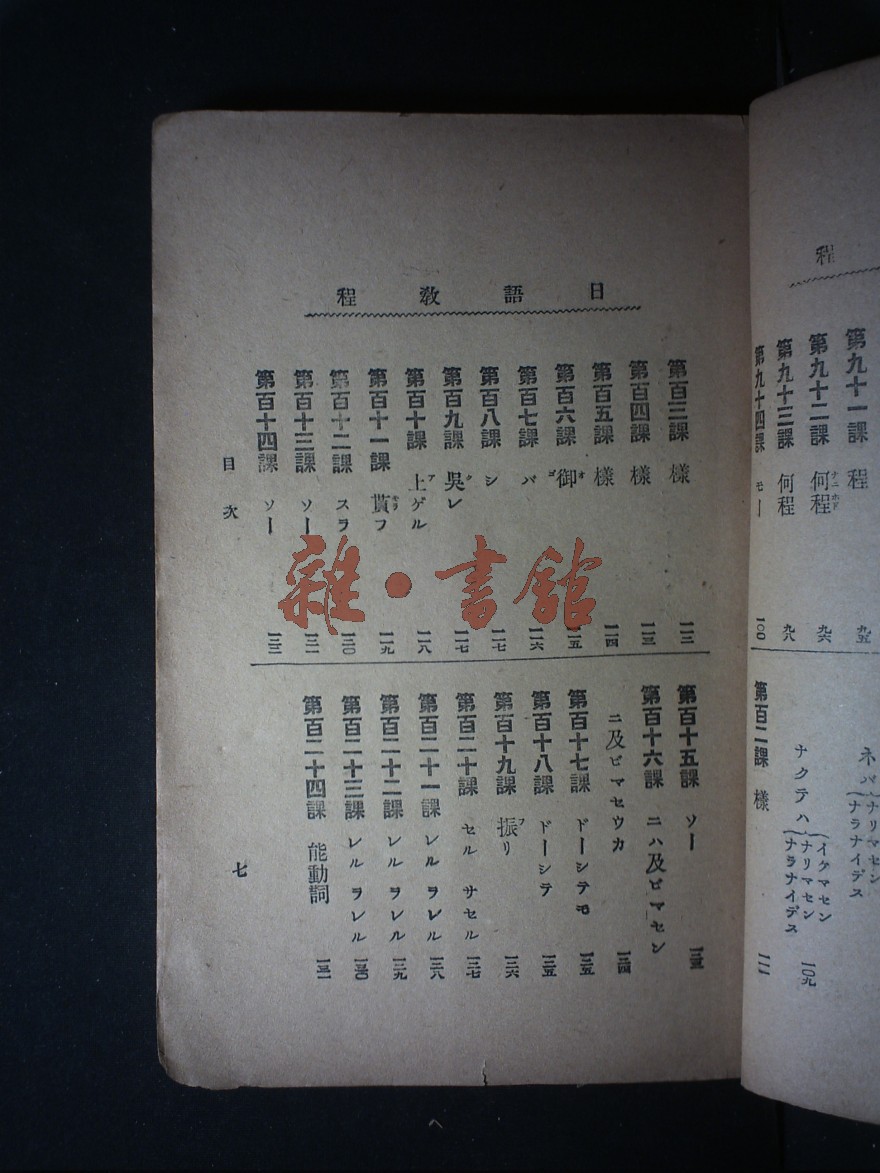 程
第九十一課 程 九五
第九十二課 何程 九六
第九十三課 何程 九八
第九十四課 モー 一〇〇
ネバ
ナリマセン
ナラナイデス
ナクテハ
イクマセン
ナリマセン
ナラナイデス
一〇九
第百二課 樣 一一一
日語敎程
第百三課 樣 一一二
第百四課 樣 一一三
第百五課 樣 一一四
第百六課 御 一一五
第百七課 バ 一一六
第百八課 シ 一一七
第百九課 吳レ 一一七
第百十課 上ゲル 一一八
第百十一課 貰フ 一一九
第百十二課 スラ 一二〇
第百十三課 ソー 一二一
第百十四課 ソー 一二二
第百十五課 ソー 一二三
第百十六課 ニハ及ビマセン
ニ及ビマセウカ 一二四
第百十七課 ドーシテモ 一二五
第百十八課 ドーシテ 一二五
第百十九課 振リ 一二六
第百二十課 セル サセル 一二七
第百二十一課 レル ラレル 一二八
第百二十二課 レル ラレル 一二九
第百二十三課 レル ラレル 一三〇
第百二十四課 能動詞 一三一
目次
七
雜·書館